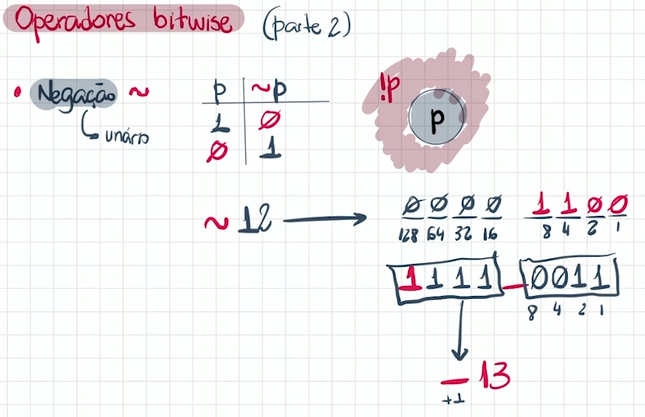 Operadores bitwise (parte 2)
• Negação ~
unário
p ~p
1 0
0 1
!p
p
~12
0 0 0 0 1 1 0 0
128 64 32 16 8 4 2 1
1 1 1 1 _ 0 0 1 1
8 4 2 1
- 13
+1